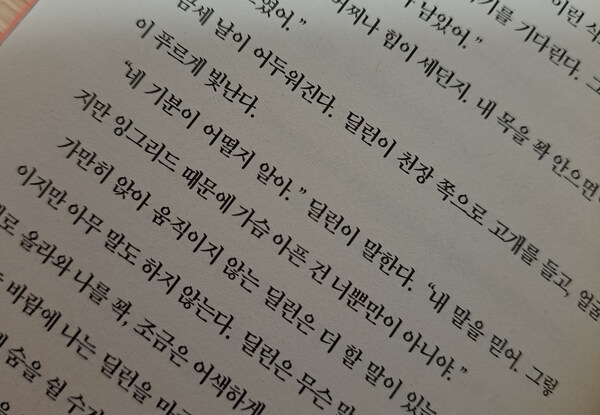 이런 식
기를 기다린다. 그
남았어.”
어찌나 힘이 세던지. 내 목을 꽉 안으면
금세 날이 어두워진다. 딜런이 천장 쪽으로 고개를 들고, 얼굴
이 푸르게 빛난다.
“네 기분이 어떨지 알아.” 딜런이 말한다. “내 말을 믿어. 그렇
지만 잉그리드 때문에 가슴 아픈 건 너뿐만이 아니야.”
가만히 앉아 움직이지 않는 딜런은 더 할 말이 있는
이지만 아무 말도 하지 않는다. 딜런은 무슨
올라와 나를 꽉, 조금은 어색하게
바람에 나는 딜런을
숨을 쉴 수